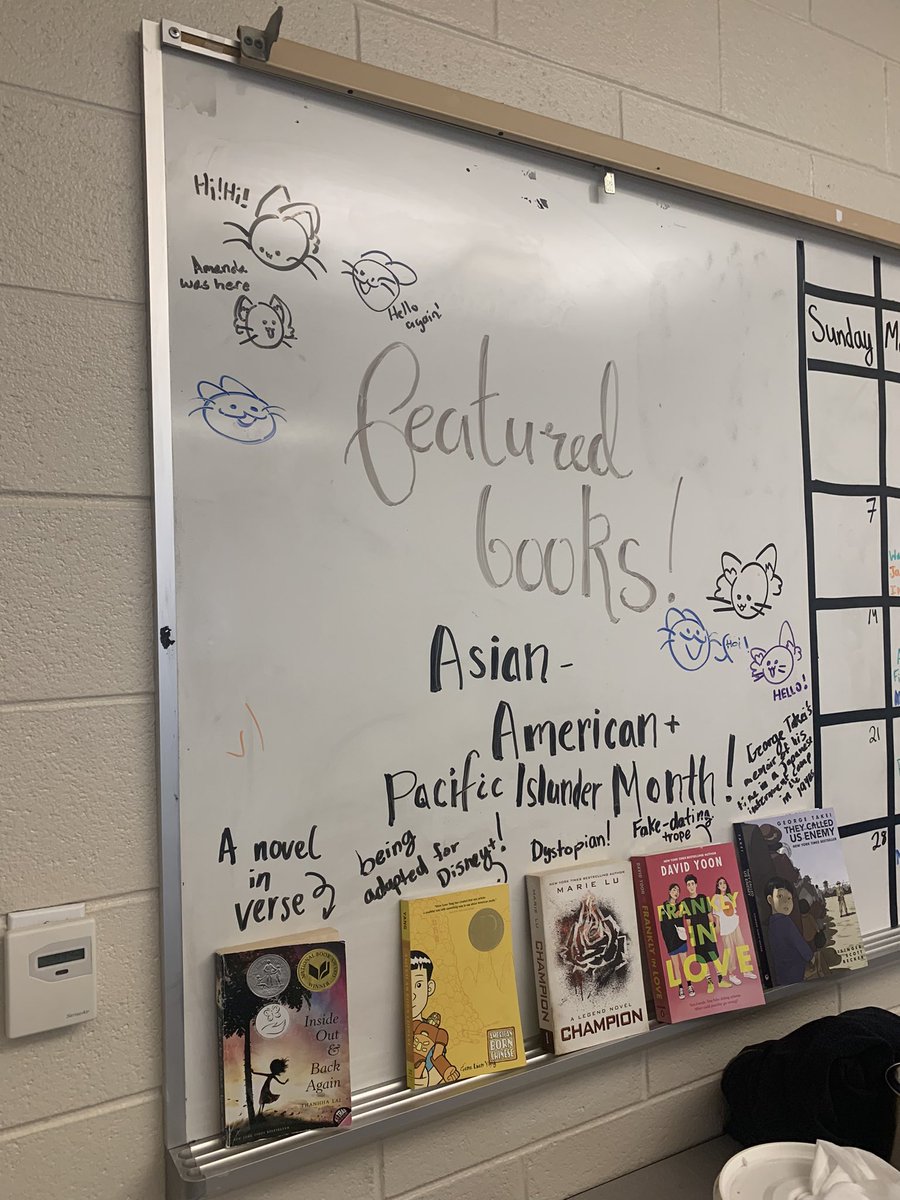 Hi! Hi!
Amanda
was here
Hello
again!
featured
books!
Hoi!
HELLO!
Asian-
American +
Pacific Islander Month!
A novel
in
verse
being
adapted for
Disney+!
Dystopian!
Fake-dating
trope
George Takei's
memoir of his
time in a Japanese
internment camp
in the
Sunday
M
7
14
21
28
NATIONAL BOOK AWARD
WINNER
Inside
Out
&
Back
Again
THANHHA LAI
YANG
AMERICAN
BORN
CHINESE
Gene Luen Yang
CHAMPION
MARIE LU
A LEGEND NOVEL
CHAMPION
DAVID YOON
FRANKLY IN LOVE
DAVID YOON
FRANKLY
IN
LOVE
GEORGE TAKEI
THEY CALLED
US ENEMY
EISINGER
SCOTT
BECKER